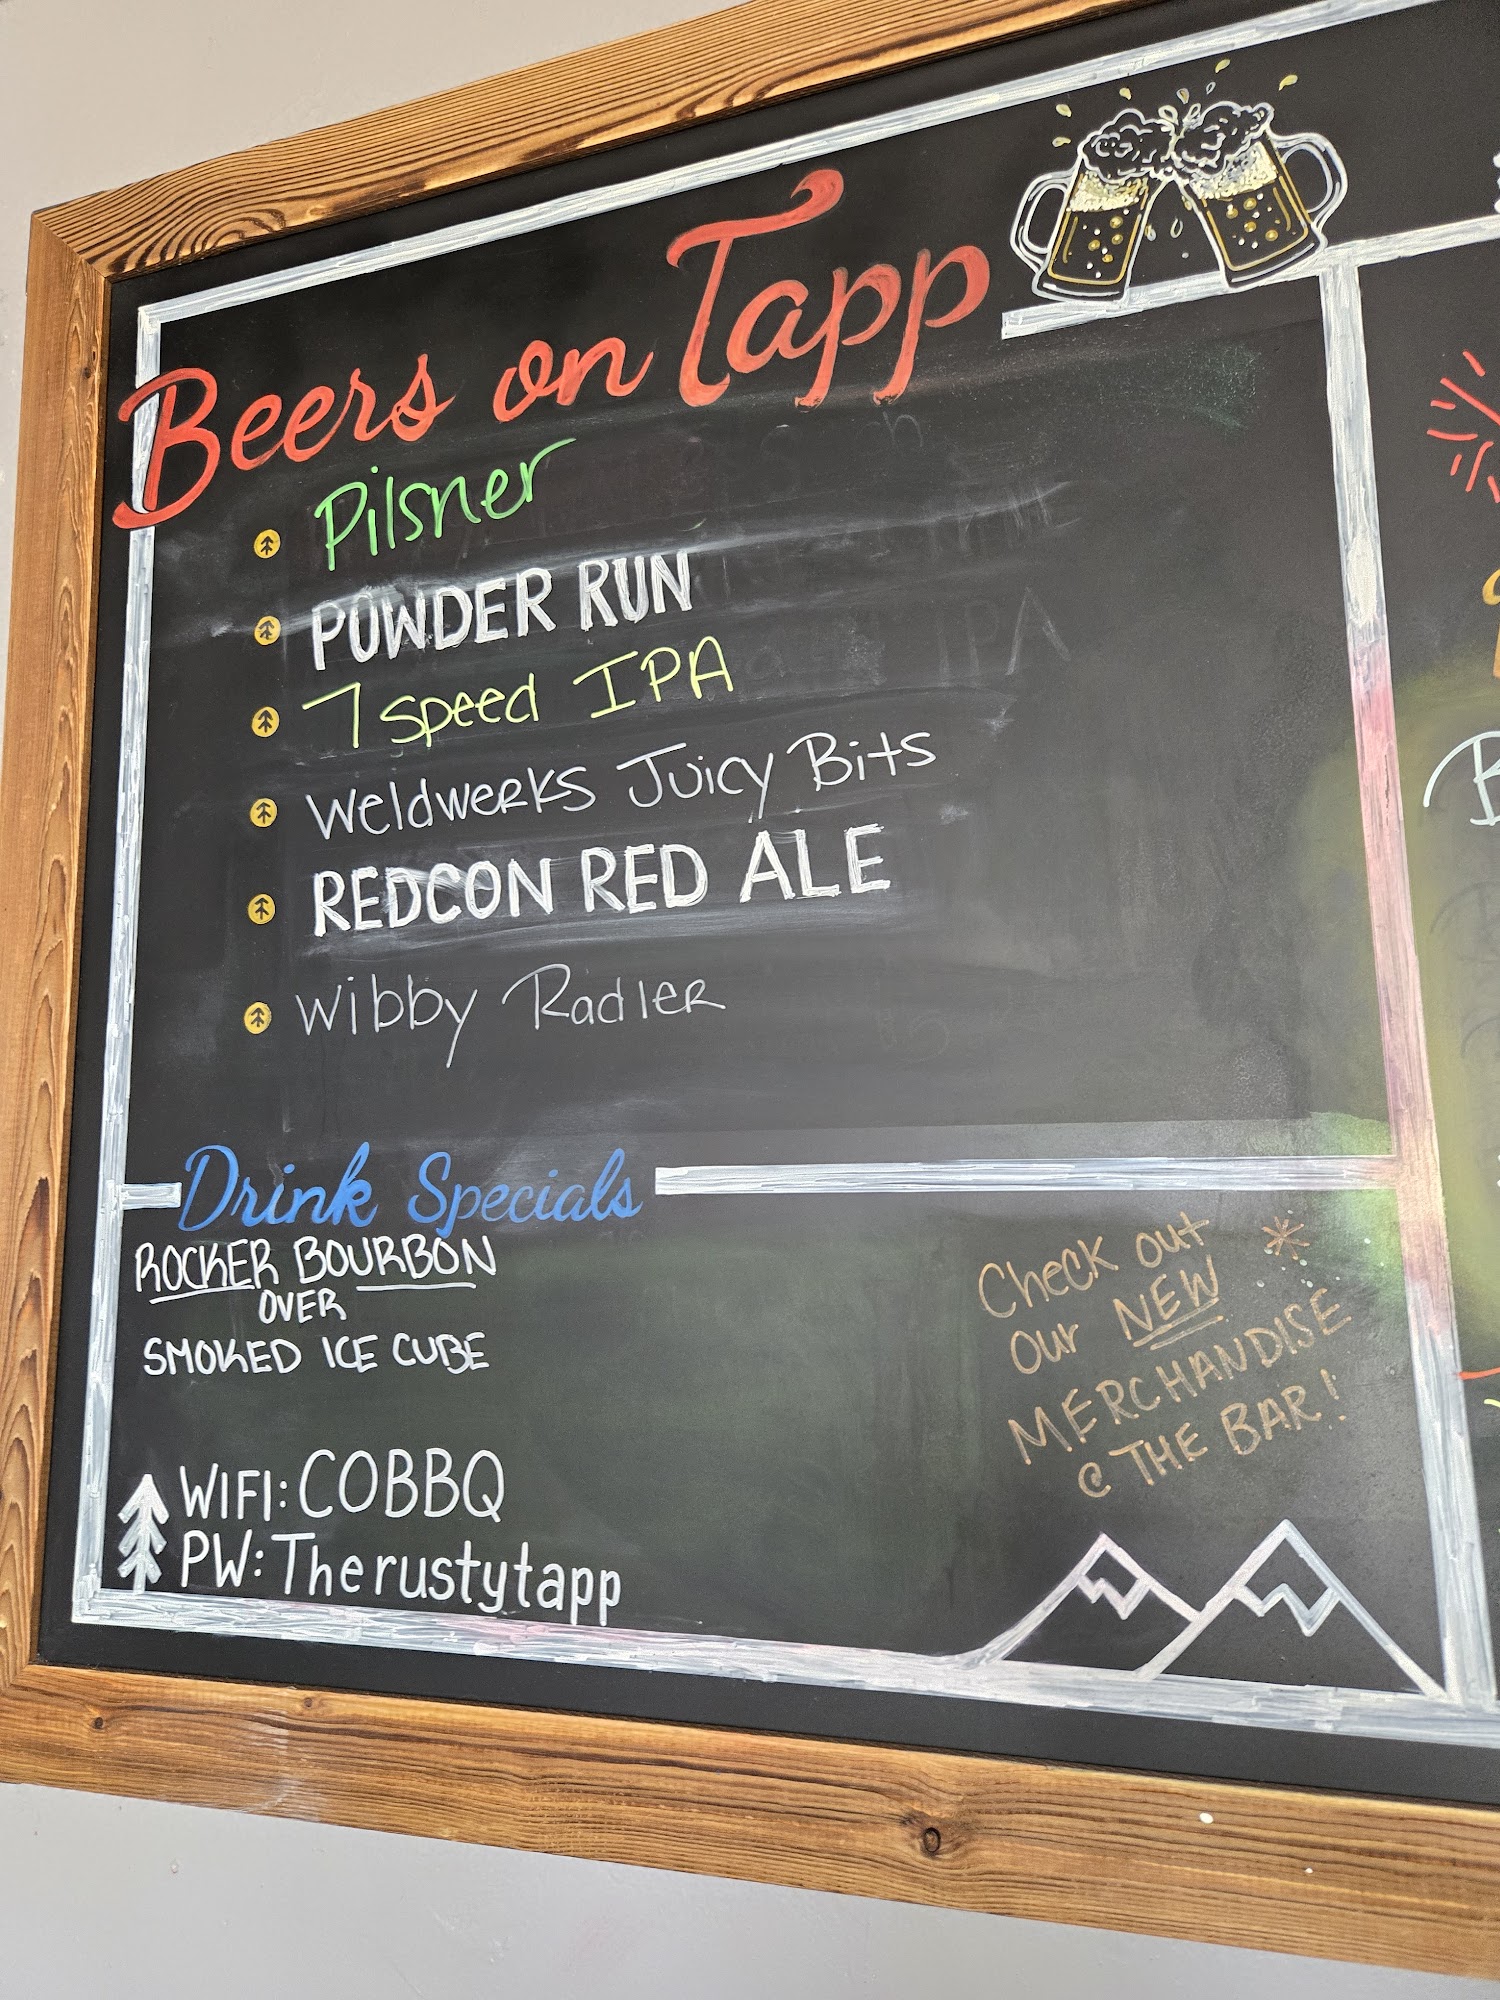 Beers on Tapp
Pilsner
POWDER RUN
7 Speed IPA
Weldwerks Juicy Bits
REDCON RED ALE
Wibby Radler
Drink Specials
ROCKER BOURBON
OVER
SMOKED ICE CUBE
Check out
our NEW
MERCHANDISE
@ THE BAR!
WIFI: COBBQ
PW: Therustytapp